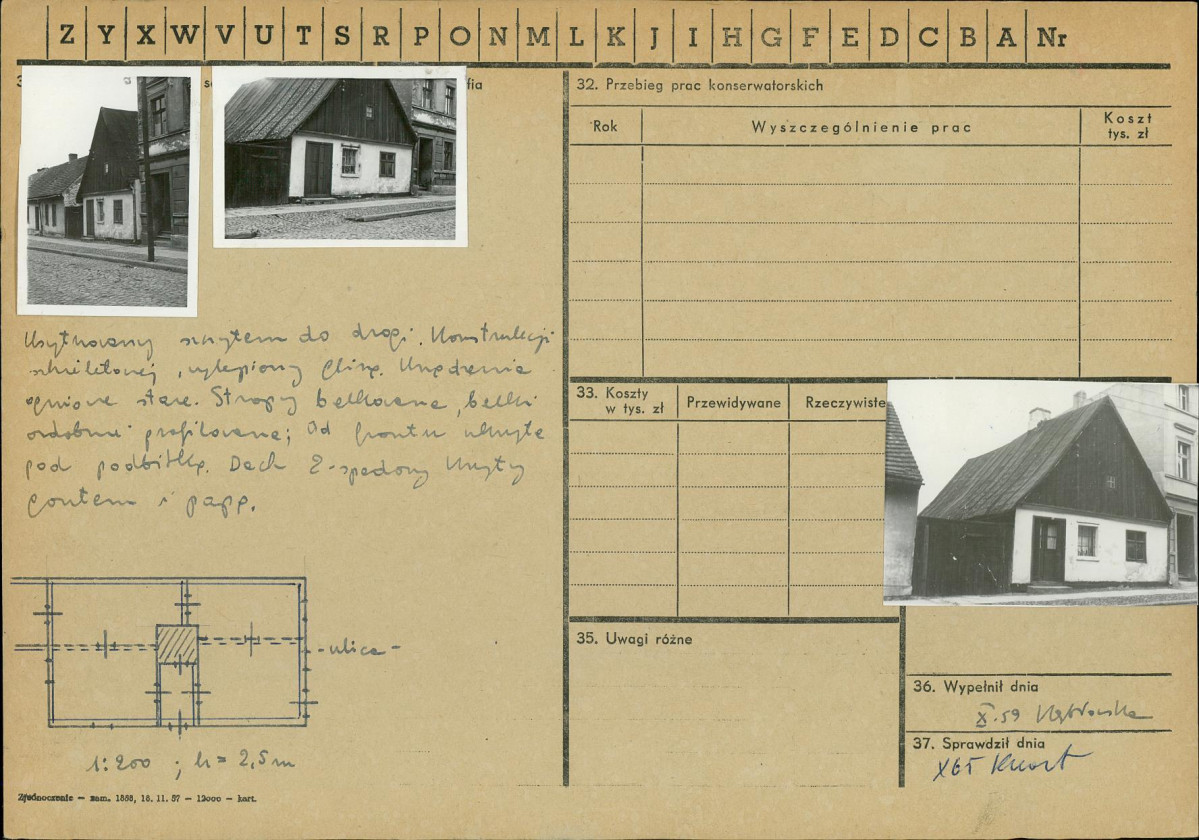 Z Y X W V U T S R P O N M L K J I H G F E D C B A Nr
32. Przebieg prac konserwatorskich
Rok
Wyszczególnienie prac
Koszt
tys. zł
Usytuowany szczytem do drogi. Konstrukcji
szkieletowej, wylepiony gliną. Urządzenia
ogniowe stare. Stropy belkowane, belki
ozdobnie profilowane; Od frontu ukryte
pod podbitką. Dach 2-spadowy kryty
gontem i papą.
- ulica -
1:200 ; h = 2,5 m
Zjednoczenie — zam. 1858, 16. 11. 57 — 12000 — kart.
33. Koszty
w tys. zł
Przewidywane
Rzeczywiste
35. Uwagi różne
36. Wypełnił dnia
X.59
37. Sprawdził dnia